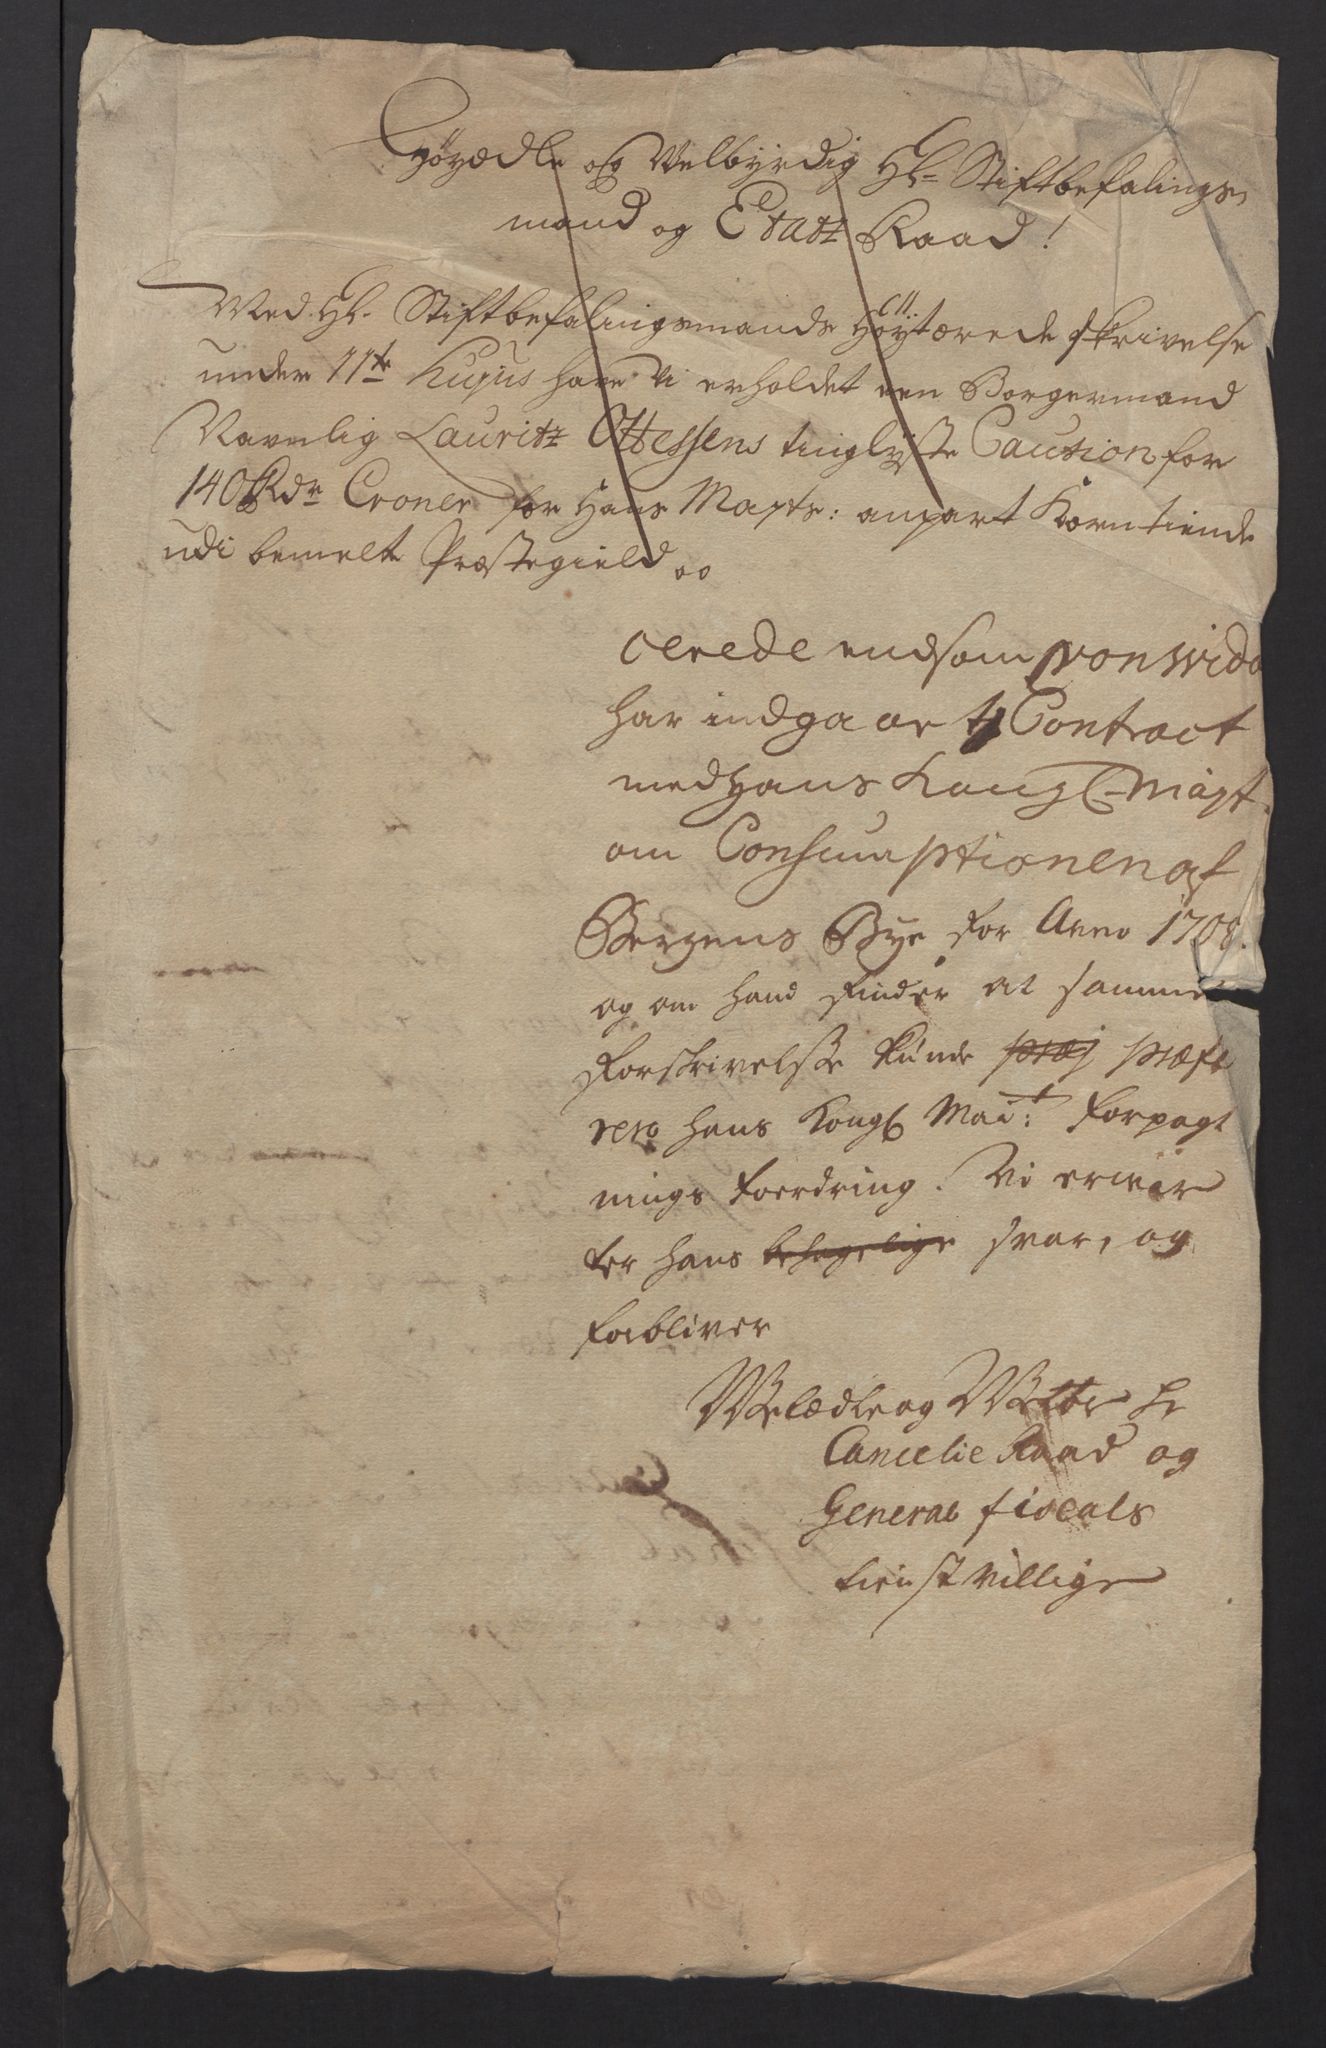 Høyædle og Velbyrdig Hr= Stiftbefalings,
mand og Etatz Raad!
Med Hr. Stiftbefalingsmands Høytærede skrivelse
under 11te hujus have Vi erholdet een Borgermand
Navnlig Lauritz Ottessens tinglyste Caution for
140 Rdr Croner for Hans Mayts: anpart Korn tiende
udi bemelte Præstegield
ærede endsom von Wida
har indgaaet Contract
med Hans Kongl. Mayt.
om Consumptionen af
Bergens Bye for Anno 1708.
og om hand finder at samme
forskrivelsse kunde præj præfe
rero hans Kongl Mait: forpagt
nings foerdring. Vi erwar
ter hans behagelige svar, og
forbliver
Welædle og Hr
Cancelie Raad og
General fiscals
tienstvillige